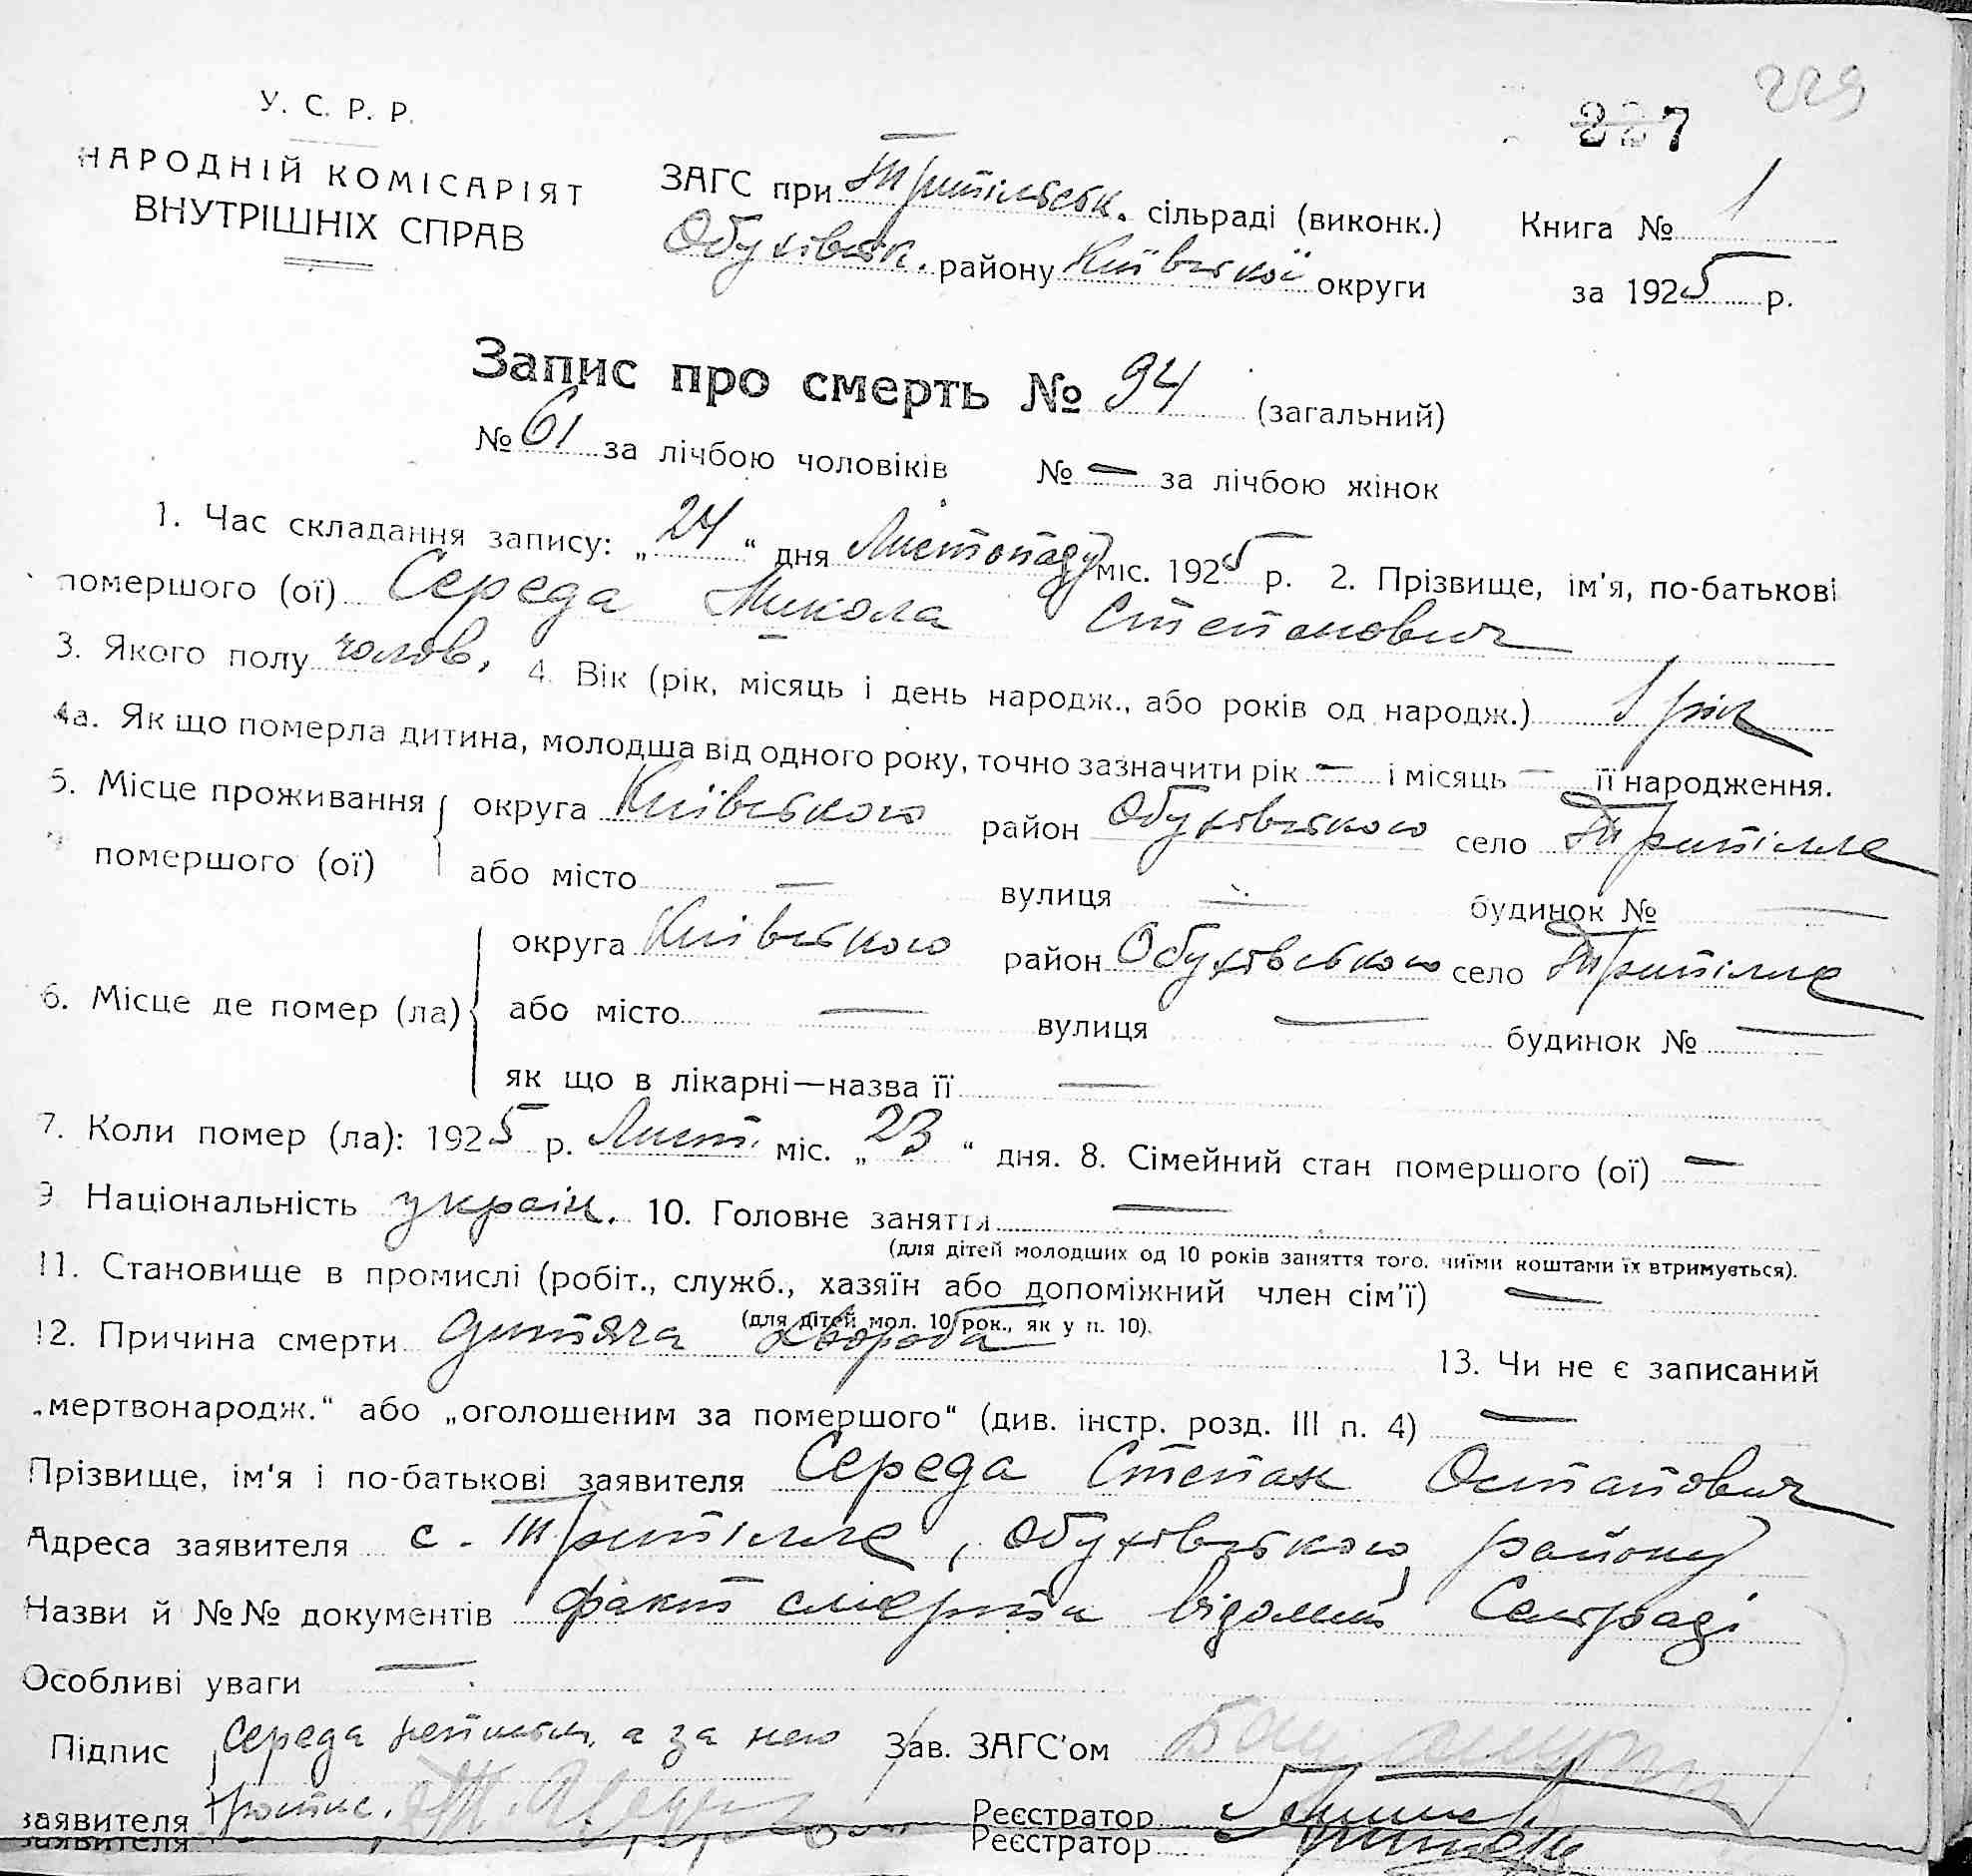 229
227
У. С. Р. Р.
НАРОДНІЙ КОМІСАРІЯТ
ВНУТРІШНІХ СПРАВ
ЗАГС при Трипільськ. сільраді (виконк.) Книга № 1
Обухівськ. району Київської округи за 1925 р.
Запис про смерть № 94 (загальний)
№ 61 за лічбою чоловіків № — за лічбою жінок
1. Час складання запису: „24“ дня Листопаду міс. 1925 р. 2. Прізвище, ім'я, по-батькові
помершого (ої) Середа Микола Степанович
3. Якого полу чолов. 4. Вік (рік, місяць і день народж., або років од народж.) 1 рік
4а. Як що померла дитина, молодша від одного року, точно зазначити рік — і місяць — її народження.
5. Місце проживання округа Київського район Обухівського село Трипілле
помершого (ої) або місто — вулиця — будинок № —
округа Київського район Обухівського село Трипілле
6. Місце де помер (ла) або місто — вулиця — будинок № —
як що в лікарні—назва її —
7. Коли помер (ла): 1925 р. Лист. міс. „23“ дня. 8. Сімейний стан помершого (ої) —
9 Національність україн. 10. Головне заняття —
(для дітей молодших од 10 років заняття того, чиїми коштами їх втримується).
11. Становище в промислі (робіт., служб., хазяїн або допоміжний член сім'ї) —
(для дітей мол. 10 рок., як у п. 10).
12. Причина смерти дитяча хвороба 13. Чи не є записаний
„мертвонародж.“ або „оголошеним за помершого“ (див. інстр. розд. III п. 4) —
Прізвище, ім'я і по-батькові заявителя Середа Степан Остапович
Адреса заявителя с. Трипілле, Обухівського району
Назви й №№ документів факт смерти відомий Сельраді
Особливі уваги —
Підпис Середа неписьм. а за нею Зав. ЗАГС'ом
заявителя Реєстратор
заявителя Реєстратор